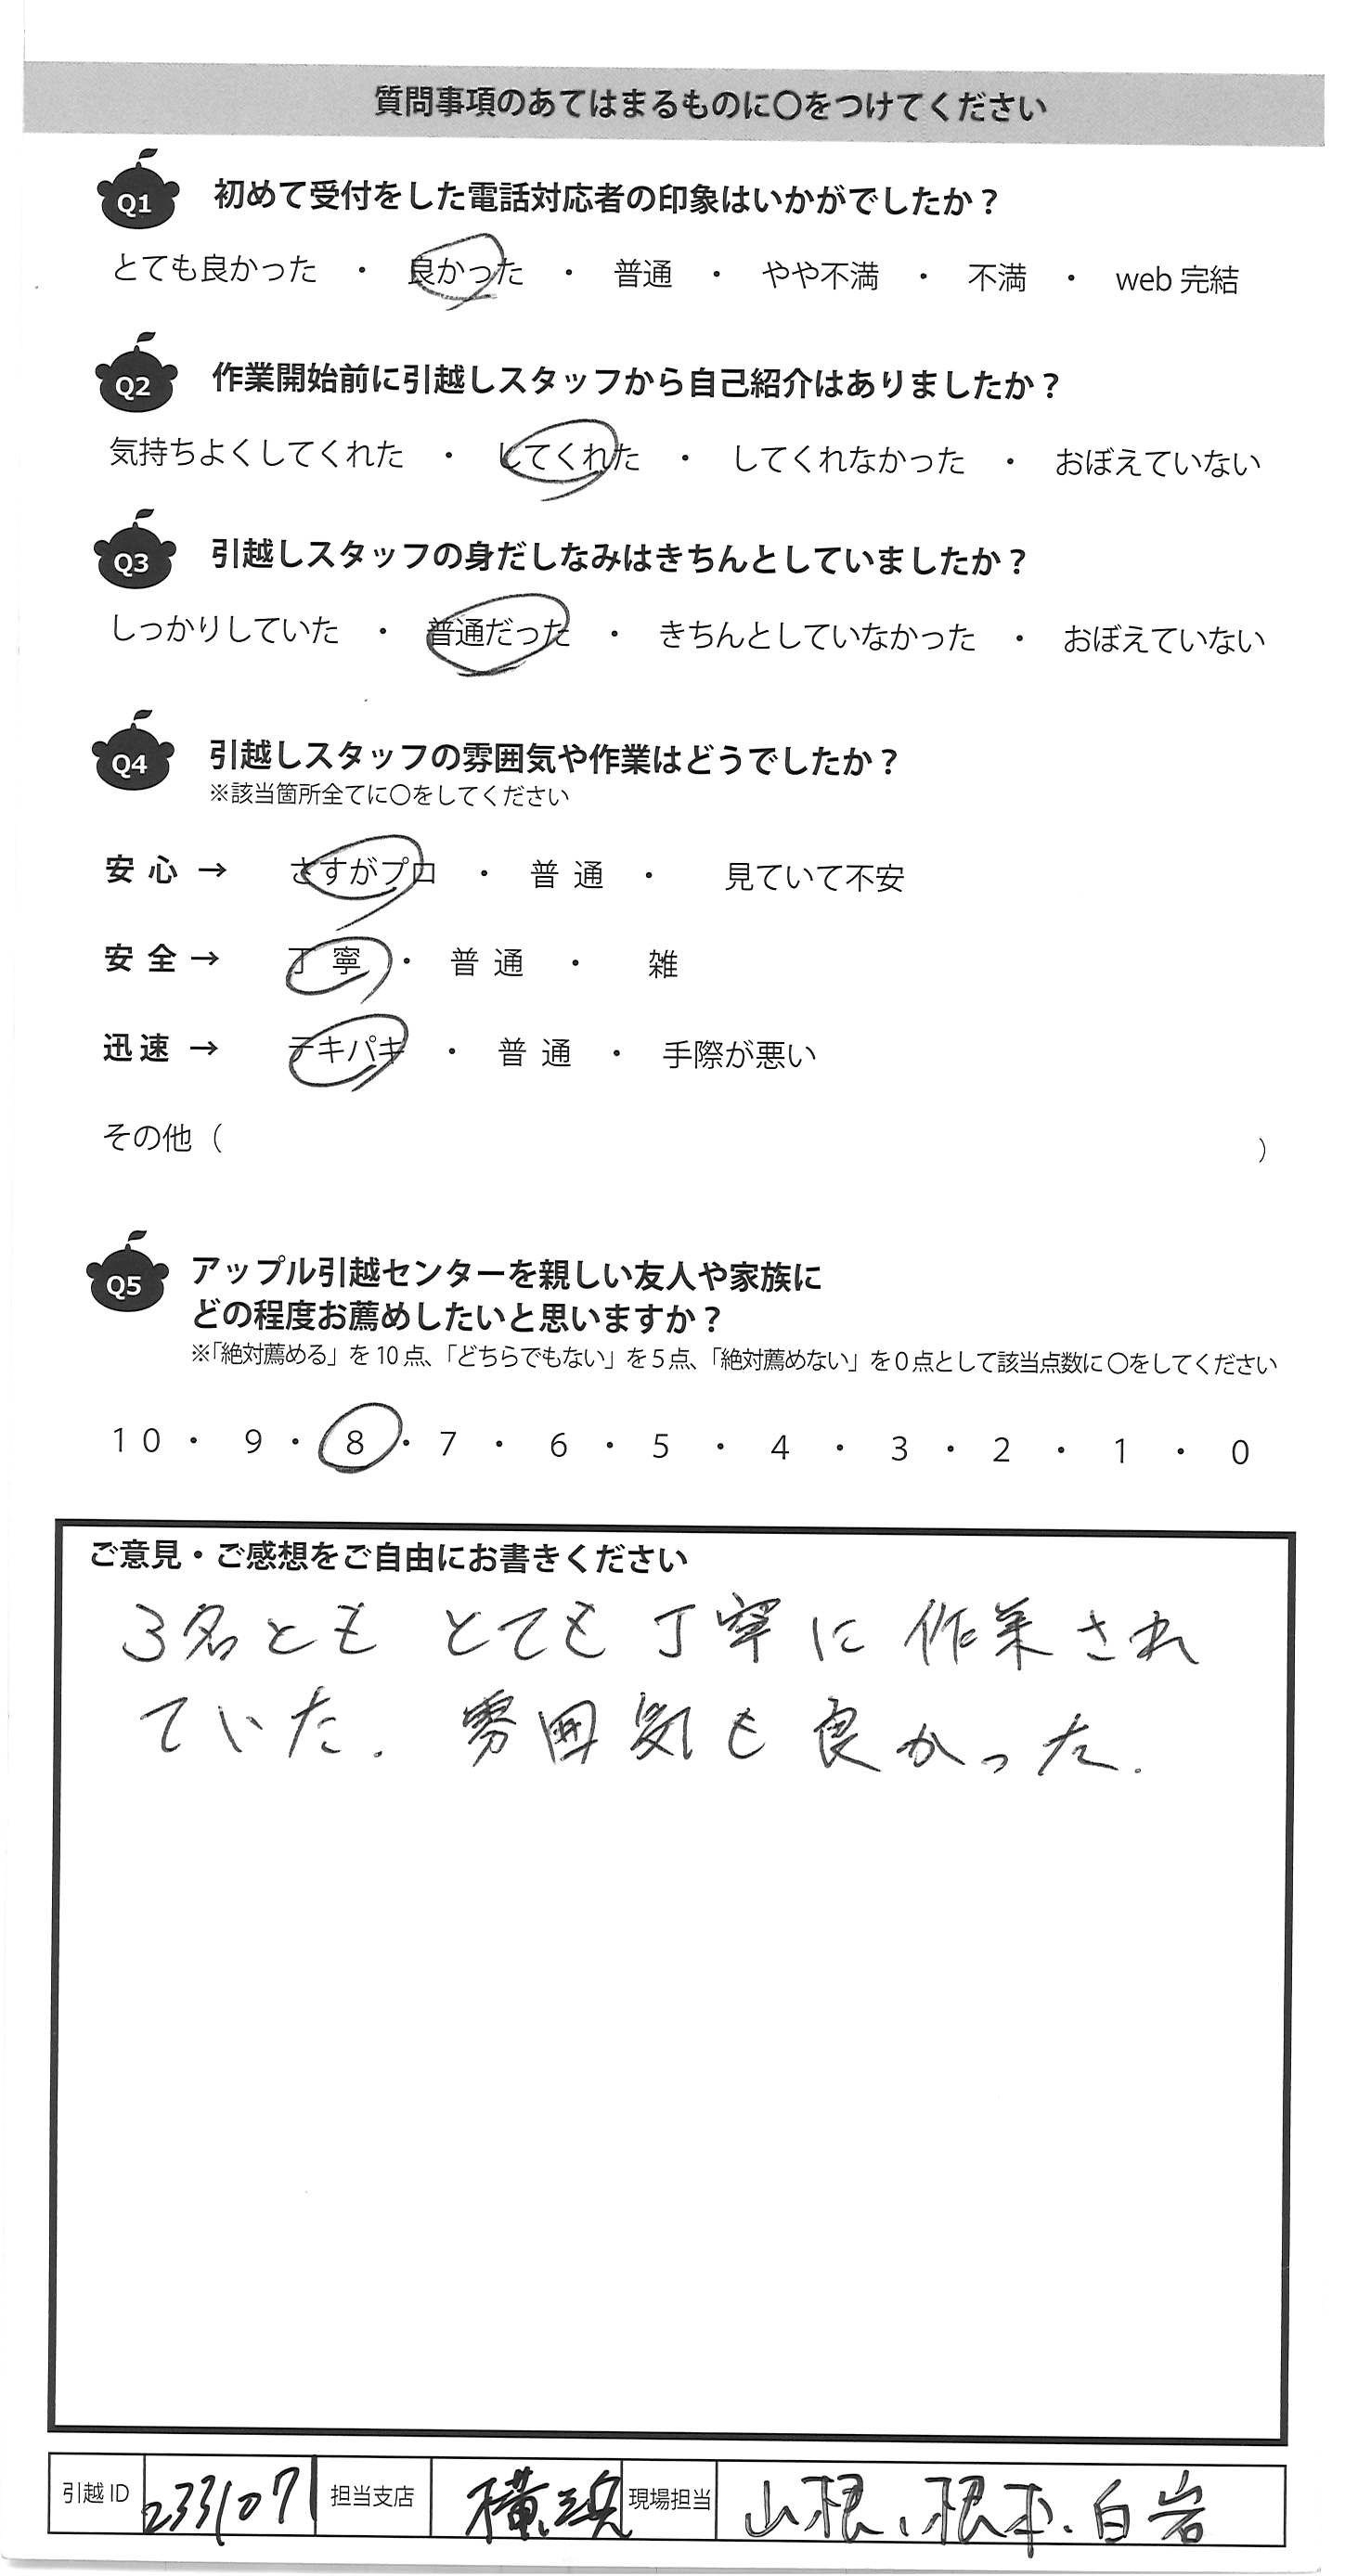 質問事項のあてはまるものに〇をつけてください
Q1 初めて受付をした電話対応者の印象はいかがでしたか？
とても良かった ・ 良かった ・ 普通 ・ やや不満 ・ 不満 ・ web 完結
Q2 作業開始前に引越しスタッフから自己紹介はありましたか？
気持ちよくしてくれた ・ してくれた ・ してくれなかった ・ おぼえていない
Q3 引越しスタッフの身だしなみはきちんとしていましたか？
しっかりしていた ・ 普通だった ・ きちんとしていなかった ・ おぼえていない
Q4 引越しスタッフの雰囲気や作業はどうでしたか？
※該当箇所全てに〇をしてください
安心 → さすがプロ ・ 普通 ・ 見ていて不安
安全 → 丁寧 ・ 普通 ・ 雑
迅速 → テキパキ ・ 普通 ・ 手際が悪い
その他（ ）
Q5 アップル引越センターを親しい友人や家族に
どの程度お薦めしたいと思いますか？
※「絶対薦める」を10点、「どちらでもない」を5点、「絶対薦めない」を0点として該当点数に〇をしてください
10 ・ 9 ・ 8 ・ 7 ・ 6 ・ 5 ・ 4 ・ 3 ・ 2 ・ 1 ・ 0
ご意見・ご感想をご自由にお書きください
3名とも とても丁寧に作業され
ていた. 雰囲気も良かった.
引越ID 233107 担当支店 横浜 現場担当 山根、根本、白岩